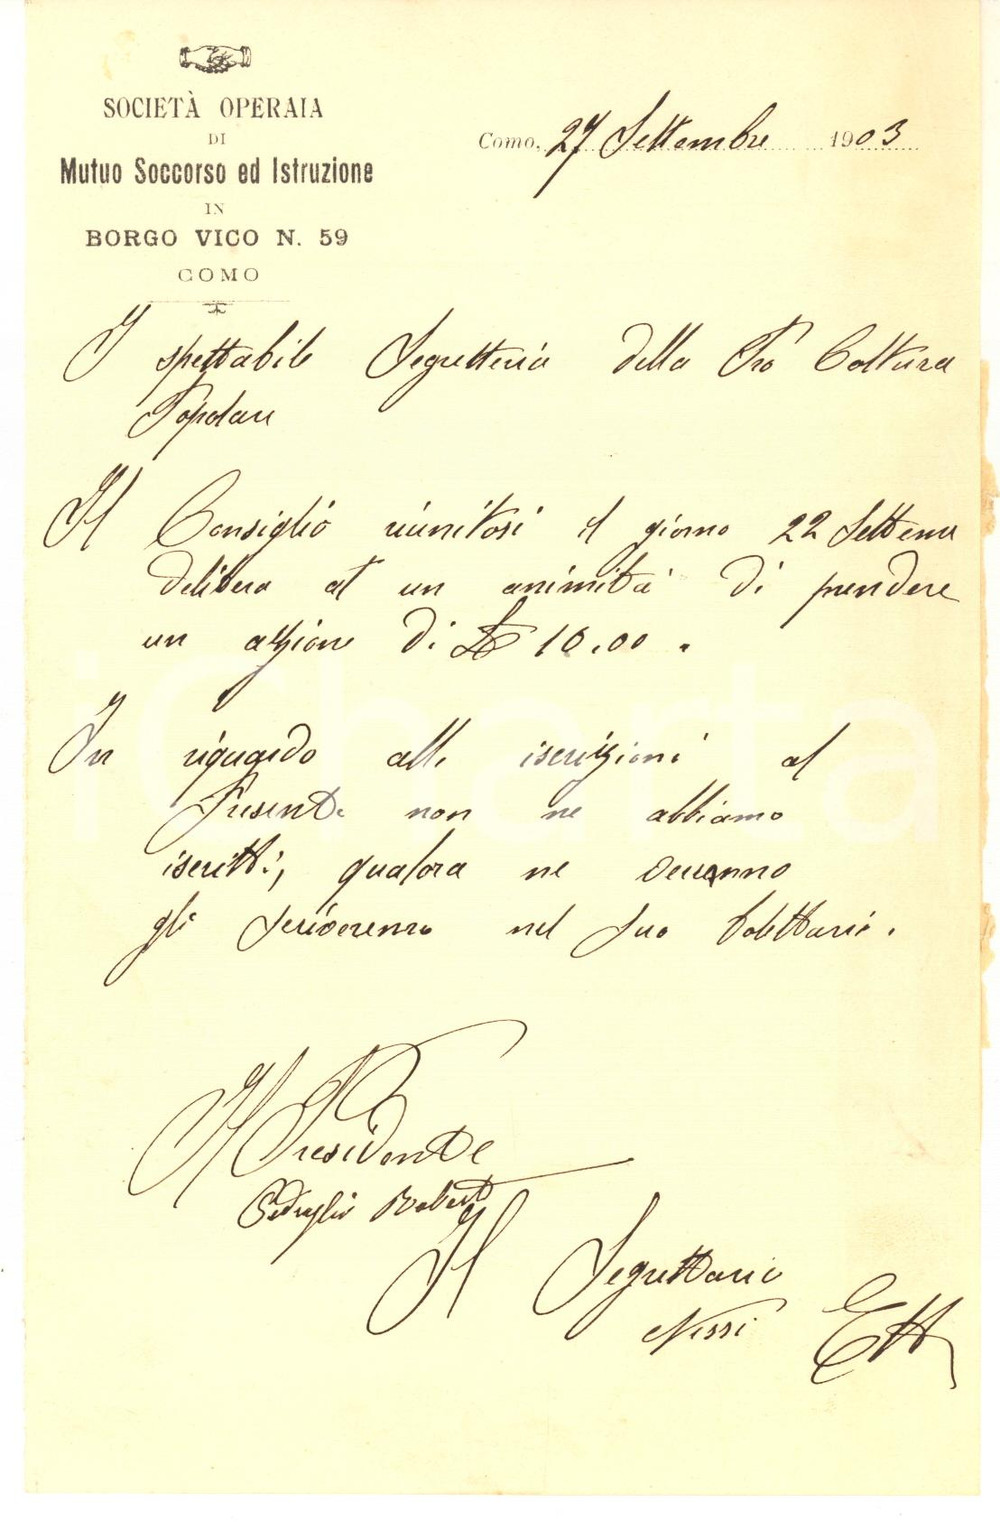 SOCIETÀ OPERAIA
DI
Mutuo Soccorso ed Istruzione
IN
BORGO VICO N. 59
COMO
Como, 27 Settembre 1903
I spettabile Segretteria della Pro Coltura
Popolare
Il Consiglio riunitosi il giorno 22 Settem
delibera at un animità di prendere
un azzione di £ 10.00.
In riguardo alle iscrizzioni al
Presente non ne abbiamo
iscritti, qualora ne verranno
gli scriveremo nel suo bolettario.
Il Presidente
Il Segrettario
Nessi Ett
iCharta